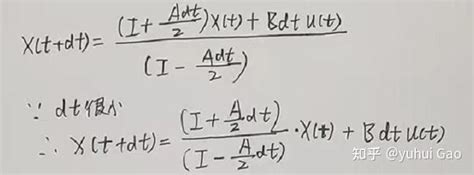 X(t+dt) = \frac{(I + \frac{Adt}{2})X(t) + Bdt u(t)}{(I - \frac{Adt}{2})}
∵ dt很小
∴ X(t+dt) = \frac{(I + \frac{A}{2}dt)}{(I - \frac{A}{2}dt)} · X(t) + Bdt u(t)
知乎 @yuhui Gao